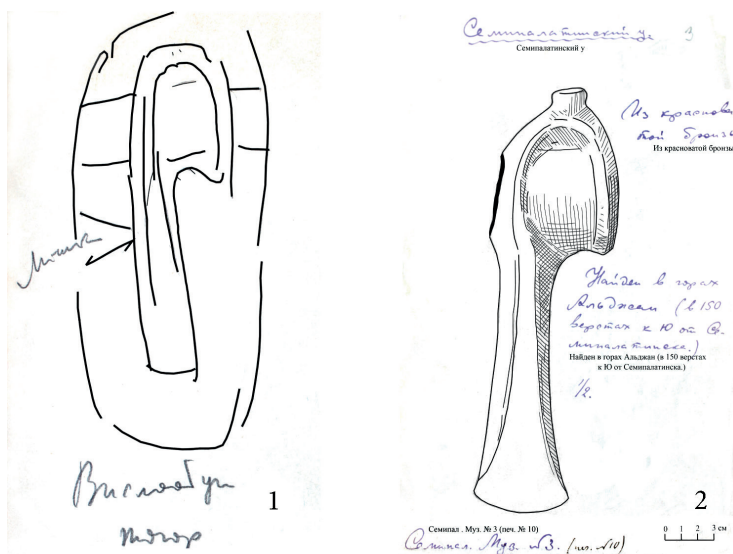 Вислообуш
топор
1
Семипалатинский у
3
Семипалатинский у
Из краснова
той бронзы
Из красноватой бронзы
Найден в горах
Альджан (в 150
верстах к Ю от Се-
мипалатинска.)
Найден в горах Альджан (в 150 верстах
к Ю от Семипалатинска.)
1/2.
2
Семипал . Муз. № 3 (печ. № 10)
Семипал. Муз. №3. (печ. №10)
0 1 2 3 см